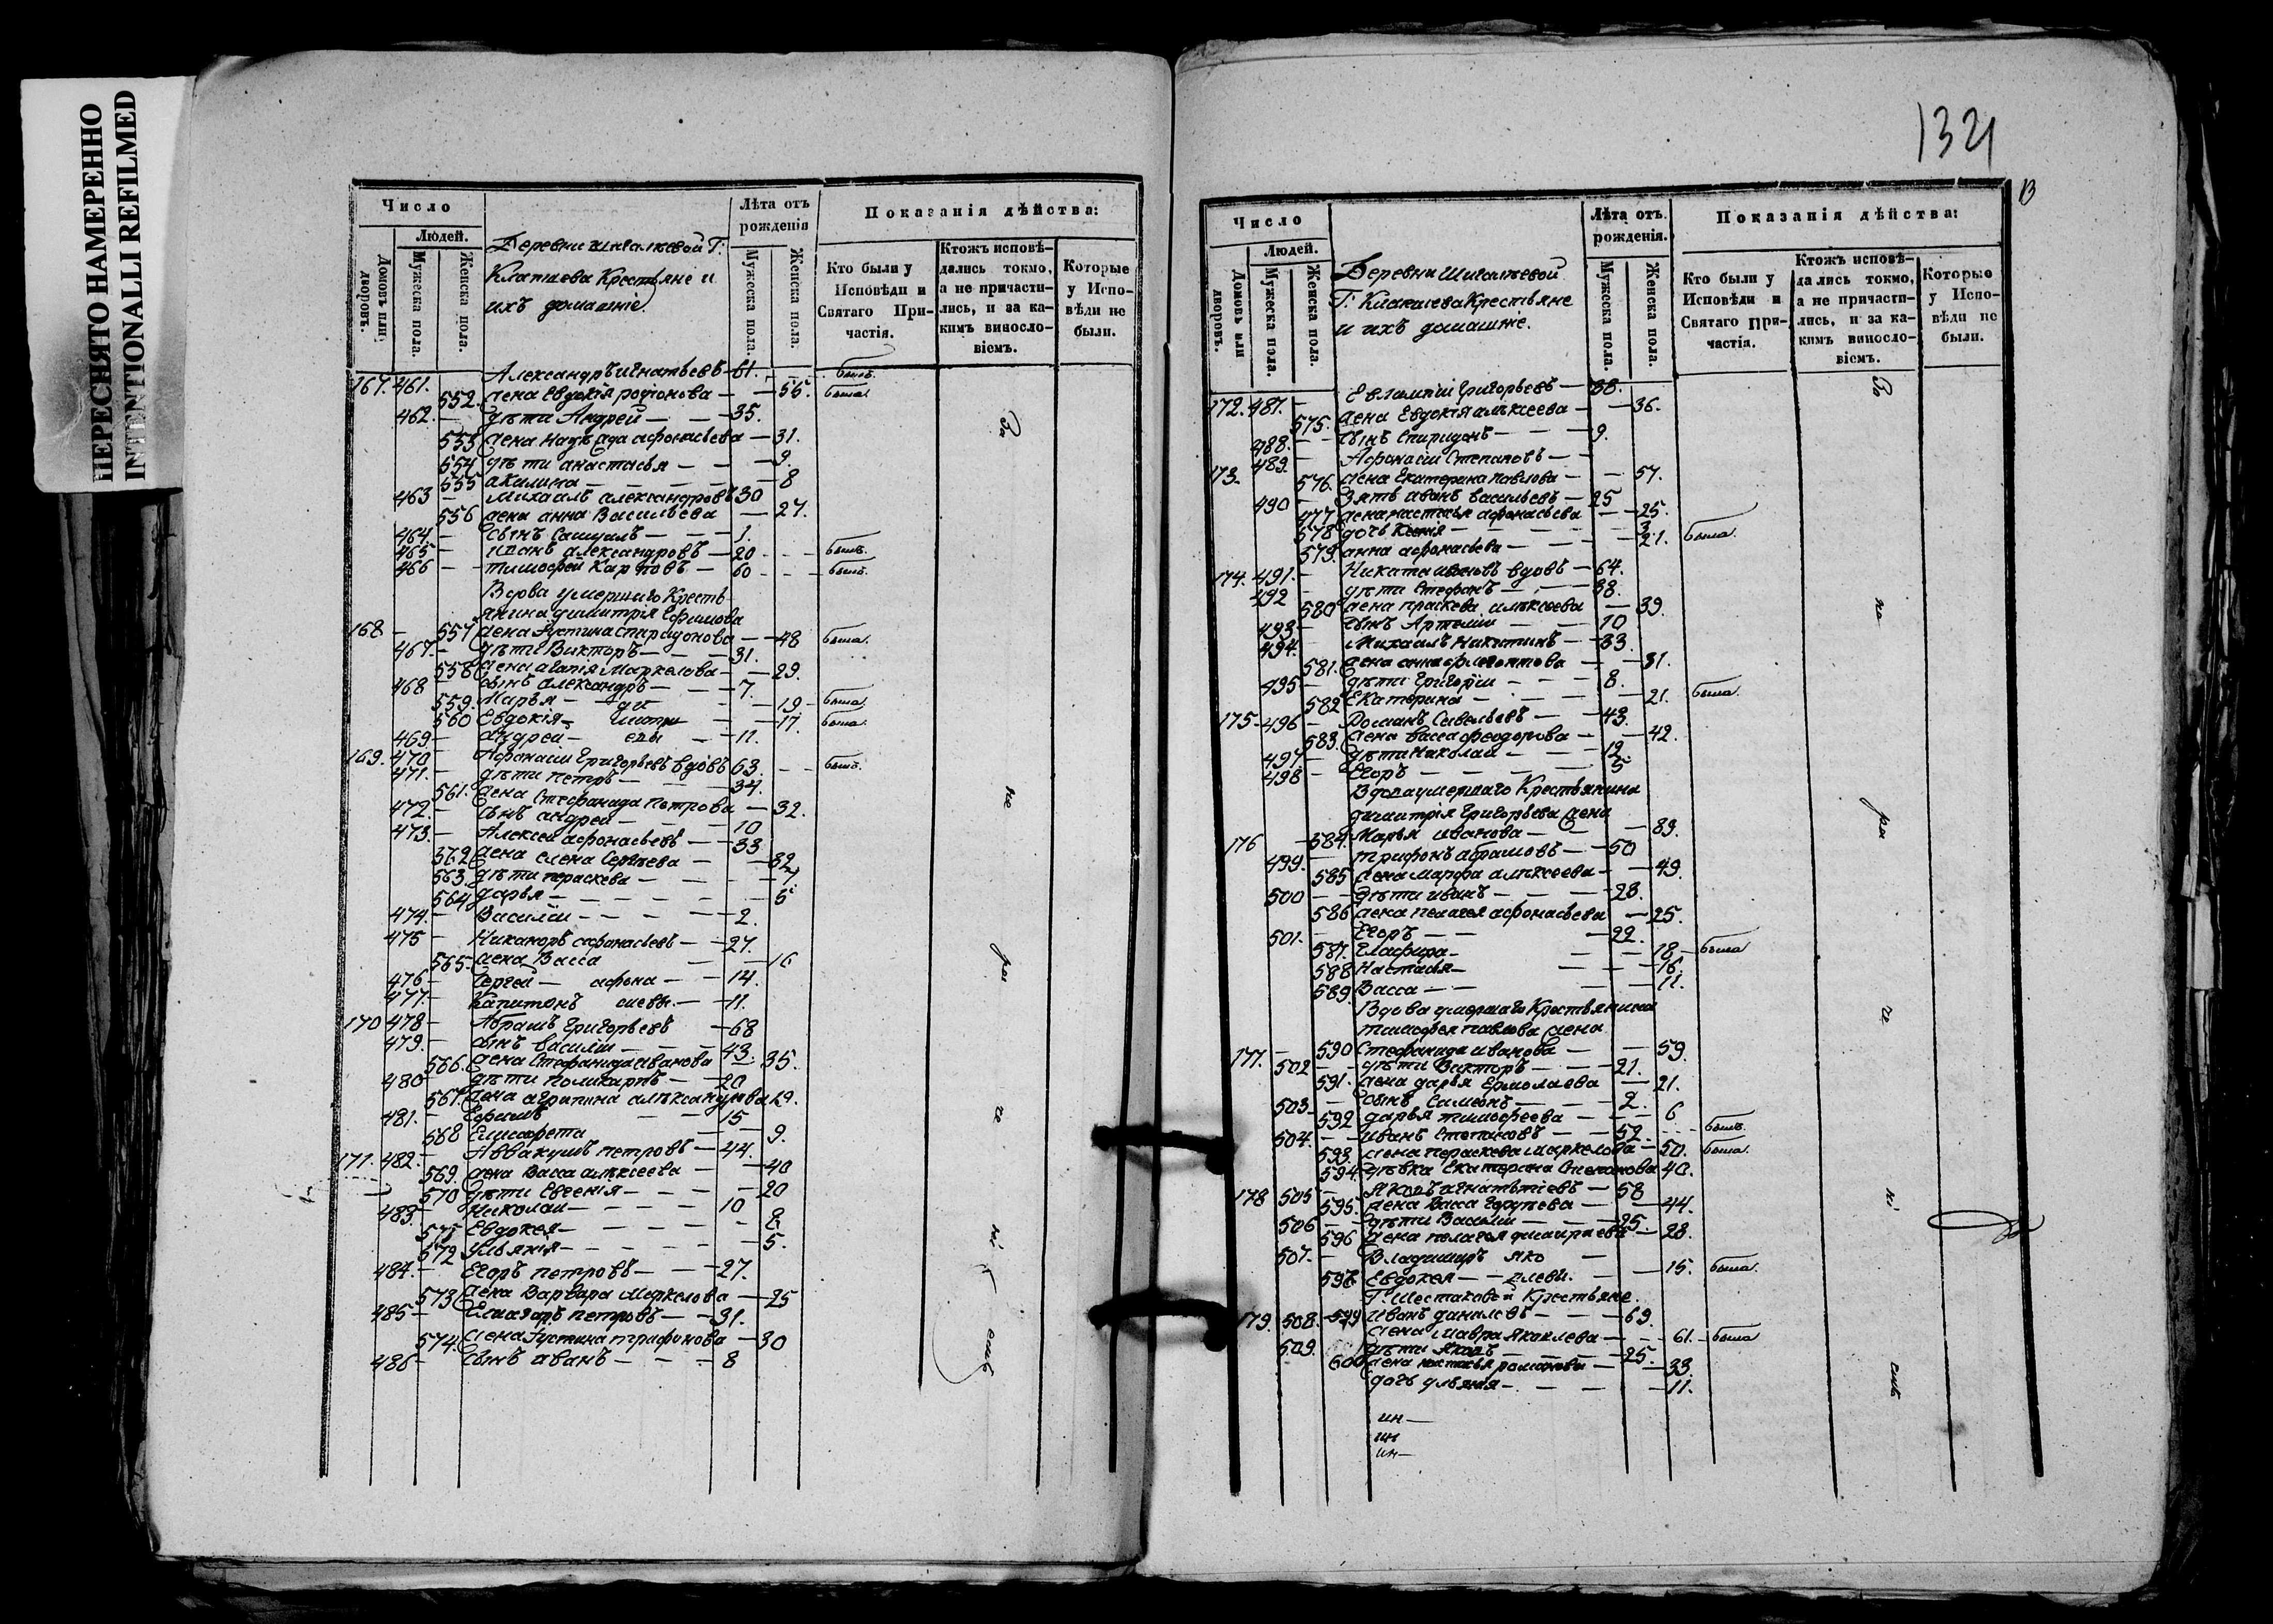 ПЕРЕСНЯТО НАМЕРЕННО
INTENTIONALLI REFILMED
Число
Людей.
Домовъ или дворовъ.
Мужеска пола.
Женска пола.
Деревни Г:
Крестьяне и
ихъ домашніе.
Лѣта отъ рожденія
Мужеска пола.
Женска пола.
Показанія дѣйства:
Кто были у Исповѣди и Святаго Причастія.
Ктожъ исповѣдались токмо, а не причастились, и за какимъ винословіемъ.
Которые у Исповѣди не были.
167. 461. Александръ Игнатьевъ 61. былъ.
552. жена Евдокія Родіонова 55. была.
462. дѣти Андрей 35.
553 жена Надежда Афонасьева 31.
554 дѣти Анастасья 9.
555 Акилина 8
463 Михаилъ Александровъ 30
556 жена Анна Васильева 27.
464 сынъ Самуилъ 1.
465 Иванъ Александровъ 20 былъ.
466 Тимофей Карповъ 60 былъ.
Вдова умершаго Кресть
янина Димитрія Ефимова
168 557 жена Устина Спиридонова 48 была.
467. дѣти Викторъ 31.
558 жена Агапія Маркелова 29.
468 сынъ Александръ 7.
559. Марья 19 была.
560 Евдокія 17. была.
469 Андрей 11.
169. 470 Афонасій Григорьевъ вдовъ 63. былъ.
471. дѣти Петръ 34.
561. жена Стефанида Петрова 32.
472. сынъ Андрей 10
473. Алексей Афонасьевъ 33
562 жена Елена Сергѣева 32
563. дѣти Параскева 7
564 Дарья 5
474. Василій 2.
475 Никаноръ Афонасьевъ 27.
565. жена Васса 16
476 Сергей афона 14.
477. Капитонъ сьевы. 11.
170 478 Абрамъ Григорьевъ 68
479. сынъ Василій 43.
566. жена Стефанида Иванова 35.
480 дѣти Поликарпъ 20
567. жена Агрипина Алѣксандрова 19.
481. Ефимъ 15
568 Елисафета 9.
171. 482. Аввакумъ Петровъ 44.
569. жена Васса Алѣксеева 40
570 дѣти Евгенія 20
483. Николай 10
575 Евдокея
572 Ульянія 5.
484. Егоръ Петровъ 27.
573 жена Варвара Маркелова 25
485 Елиазаръ Петровъ 31.
574. жена Устина Трифонова 30
486 сынъ Иванъ 8
1321
Число
Людей.
Домовъ или дворовъ.
Мужеска пола.
Женска пола.
Деревни Шигалтевой
Г: Крестьяне
и ихъ домашніе.
Лѣта отъ рожденія.
Мужеска пола.
Женска пола.
Показанія дѣйства:
Кто были у Исповѣди и Святаго Причастія.
Ктожъ исповѣдались токмо, а не причастились, и за какимъ винословіемъ.
Которые у Исповѣди не были.
172. 487. Евлампій Григорьевъ 38.
575. жена Евдокія Алѣксеева 36.
488. сынъ Спиридонъ 9.
173. 489. Афонасій Степановъ
576. жена Екатерина Павлова 57.
490 Зять Иванъ Васильевъ 25
577 жена Настасья Афонасьева 25.
578 дочь Ксенія 3
579. Анна Афонасьева 21. была.
174. 491. Никита Ивановъ вдовъ 64.
492 дѣти Стефанъ 38.
580 жена Праскева Алѣксеева 39.
493 сынъ Артемій 10
494. Михаилъ Никитинъ 33.
581. жена Анна 31.
495 дѣти Григорій 8.
582 Екатерина 21. была.
175 496 Романъ Савельевъ 43.
583. жена Васса Феодорова 42.
497. дѣти Николай 12.
498 Егоръ 5
Вдова умершаго Крестьянина
Димитрія Григорьева жена
176 584. Марья Иванова 89.
499. Трифонъ Абрамовъ 50
585 жена Марфа Алѣксеева 49.
500 дѣти Иванъ 28.
586 жена Пелагея Афонасьева 25.
501. Егоръ 22.
587. Глафира 18 была
588 Настасья 16.
589. Васса 11.
Вдова умершаго Крестьянина
Тимофея Павлова жена
177. 590 Стефанида Иванова 59.
502 дѣти Викторъ 21.
591. жена Дарья Ермолаева 21.
503. сынъ Симеонъ 2.
592 Дарья Тимофеева 6
504. Иванъ Степановъ 52. былъ.
593. жена Параскева Маркелова 50. была.
594. дѣвка Екатерина Степанова 40.
178 505 Яковъ Игнатьіевъ 58
595. жена Васса 44.
506 дѣти Василій 25.
596 жена Пелагея Димитріева 28.
507. Владимиръ яко
597. Евдокея влевы. 15. была.
Г. Шестаковой Крестьяне.
179. 508. 599 Иванъ Даниловъ 69.
жена Мавра Яковлева 61. была
509. дѣти Яковъ 25.
600 жена Настасья Романова 33.
дочь Ульянія 11.